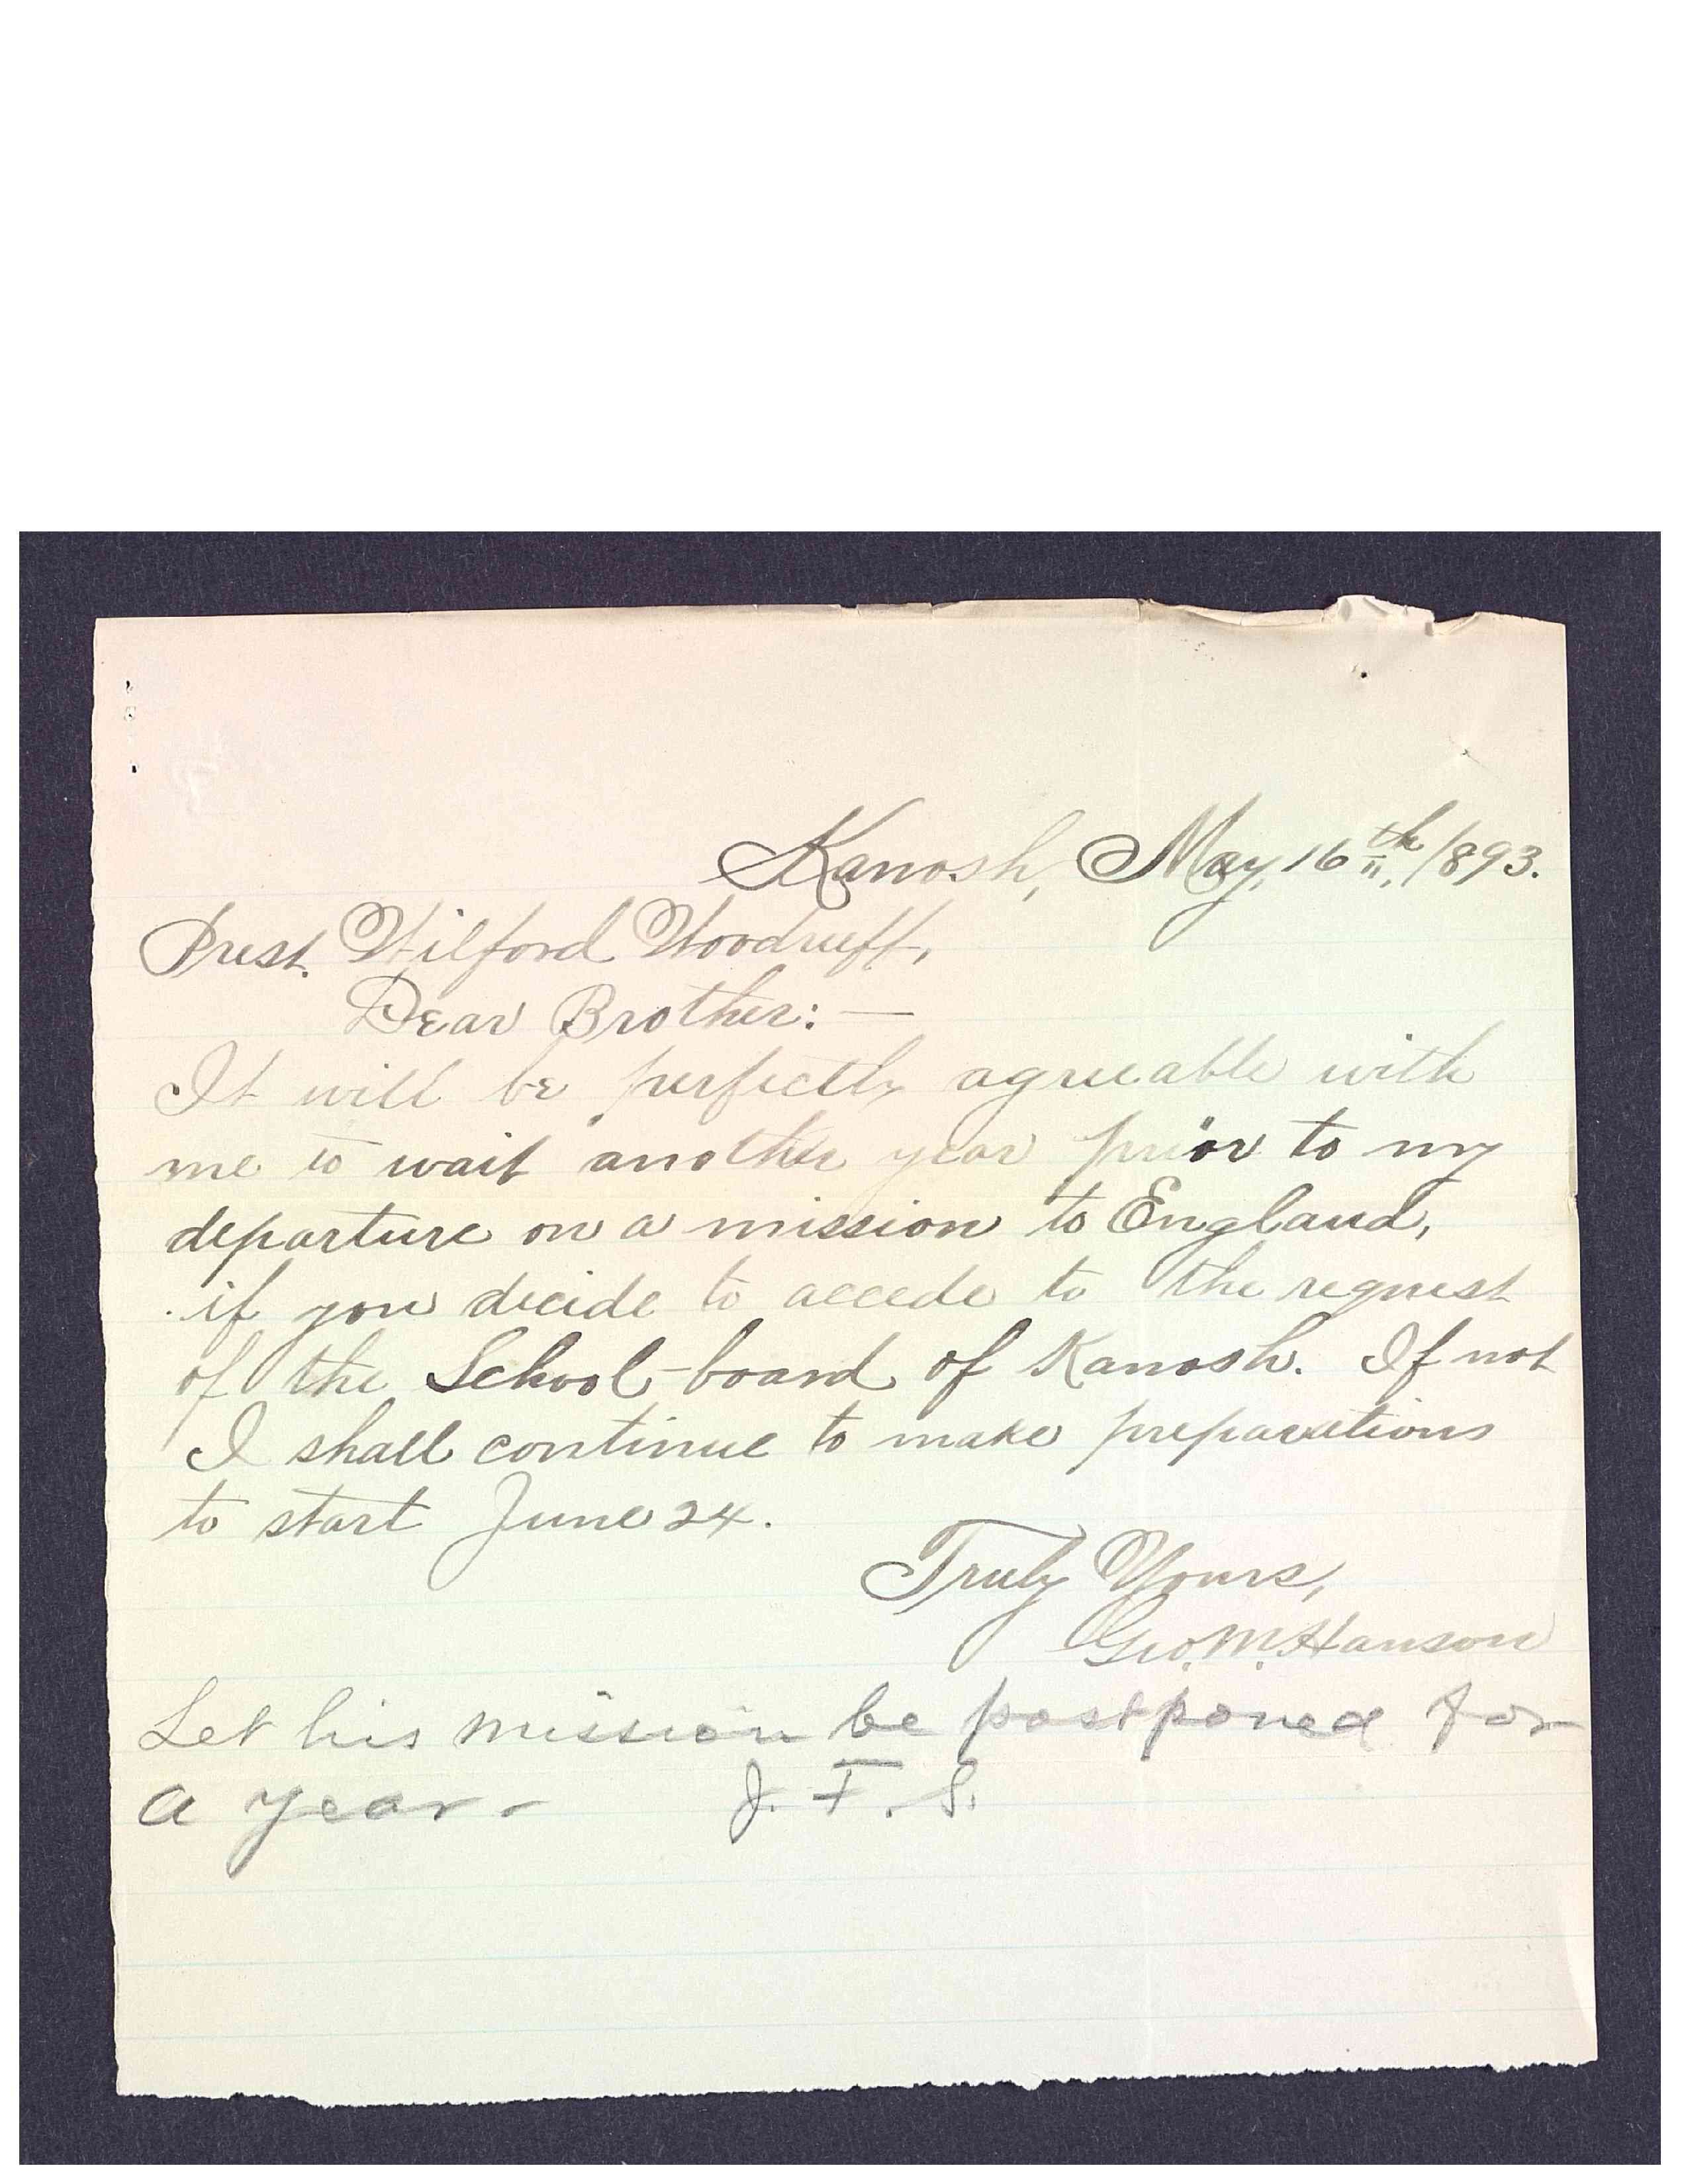 Kanosh, May, 16th, 1893.
Prest. Wilford Woodruff,
Dear Brother: —
It will be perfectly agreeable with
me to wait another year prior to my
departure on a mission to England,
if you decide to accede to the request
of the School-board of Kanosh. If not
I shall continue to make preparations
to start June 24.
Truly Yours,
Geo. M. Hanson
Let his mission be postponed for
a year - J. F. S.